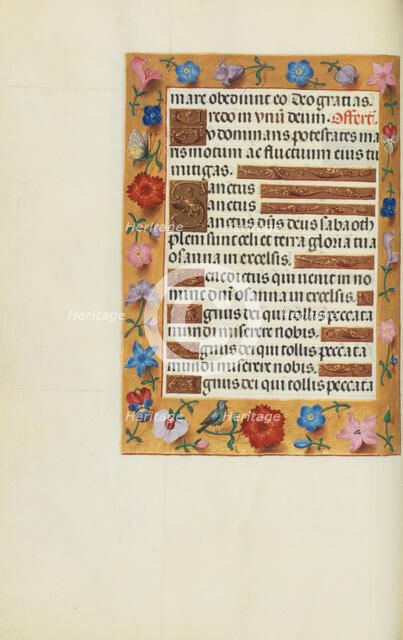 mare obediunt eo Deo gratias.
Credo in vnū deum. Offert.
Tu dominans potestates ma
ris motum ac fluctium eius tu
mitigas.
Sanctus
Sanctus
Sanctus dñs deus sabaoth
pleni sunt celi et terra gloria tua
osanna in excelsis.
Benedictus qui uenit in no
mine domī osanna in excelsis.
Agnus dei qui tollis peccata
mundi miserere nobis.
Agnus dei qui tollis peccata
mundi miserere nobis.
Agnus dei qui tollis peccata
Heritage Heritage Heritage
Images
Heritage Heritage Heritage